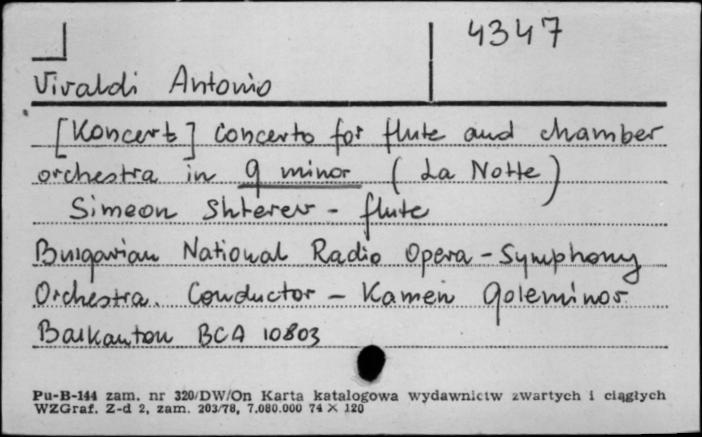 4347
Vivaldi Antonio
[Koncert] Concerto for flute and chamber
orchestra in g minor (La Notte)
Simeon Shterev - flute
Bulgarian National Radio Opera-Symphony
Orchestra. Conductor - Kamen Goleminov
Balkanton BCA 10803
Pu-B-144 zam. nr 320/DW/On Karta katalogowa wydawnictw zwartych i ciągłych
WZGraf. Z-d 2, zam. 203/78, 7.080.000 74 × 120